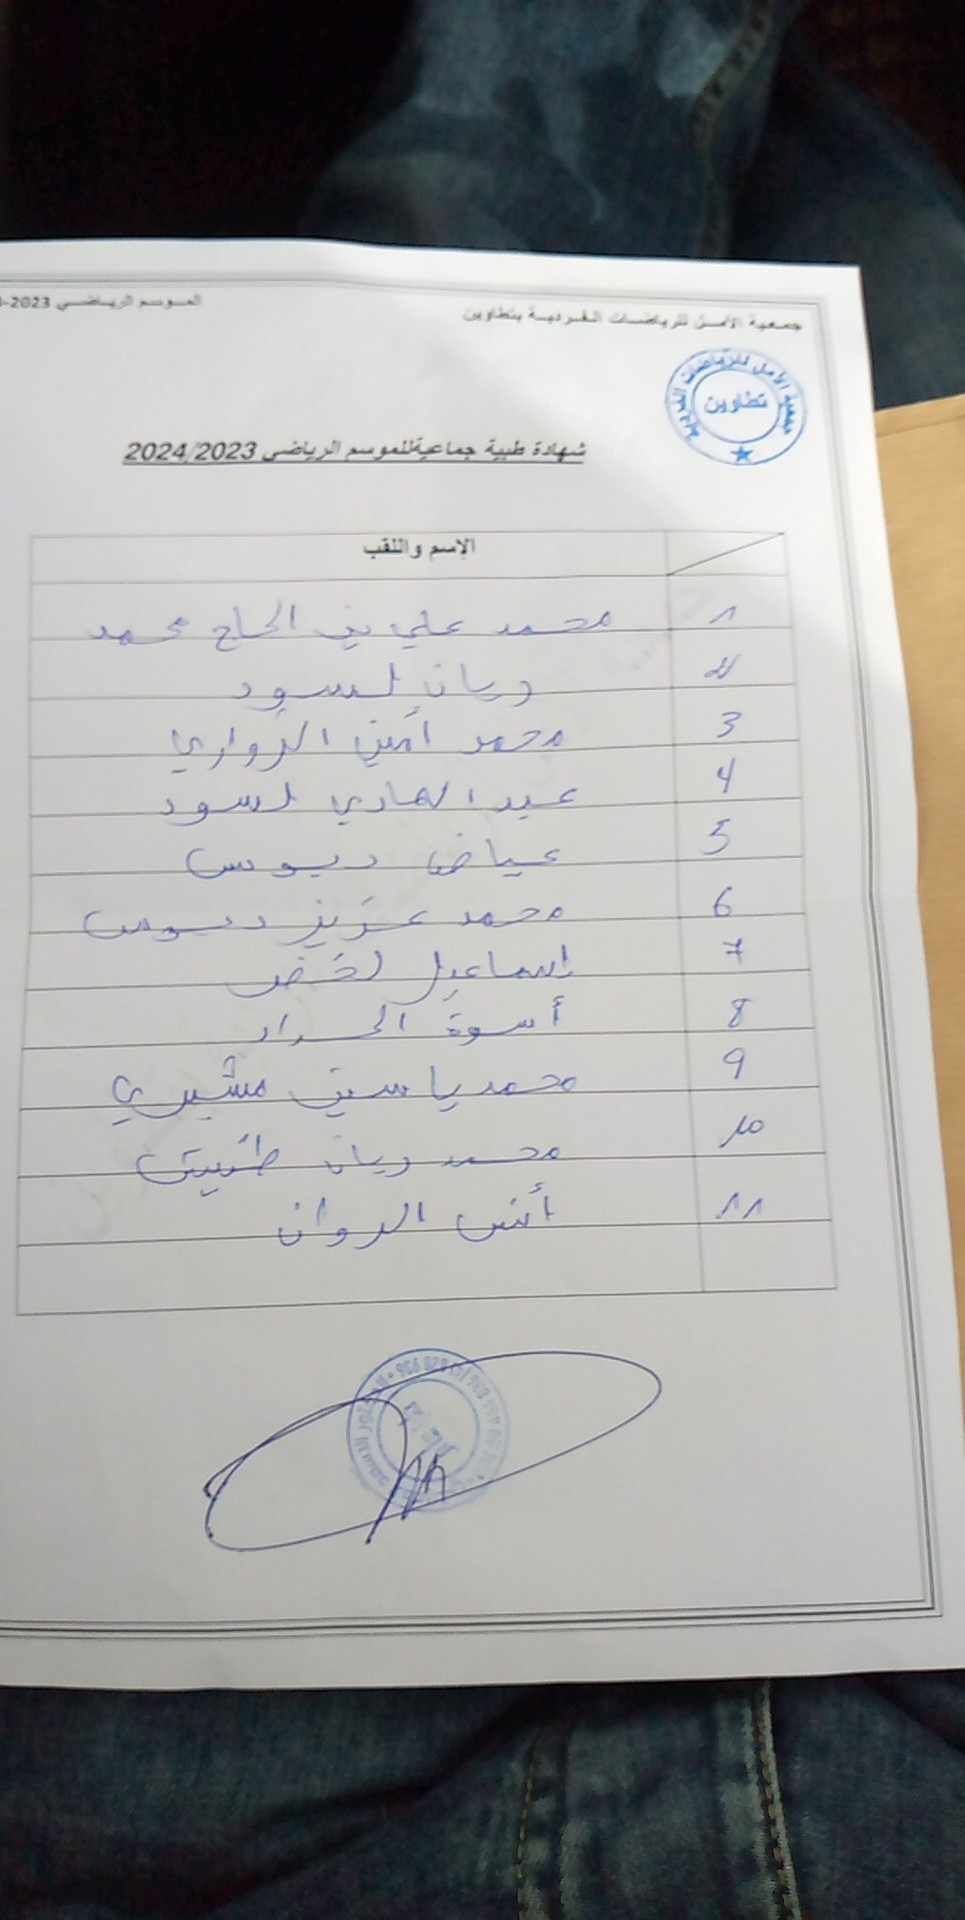 جمعية الأمل للرياضات الفردية بتطاوين
الموسم الرياضي 2023-
جمعية الأمل للرياضات الفردية
تطاوين
شهادة طبية جماعيةللموسم الرياضي 2024/2023
الإسم واللقب
1 محمد علي بن الحاج محمد
2 ريان لسود
3 محمد أمين الزواري
4 عبد الهادي لسود
5 عياض دبوس
6 محمد عزيز دبوس
7 إسماعيل لخضر
8 أسوة الحداد
9 محمد ياسين مشيري
10 محمد ريان
11 أنس